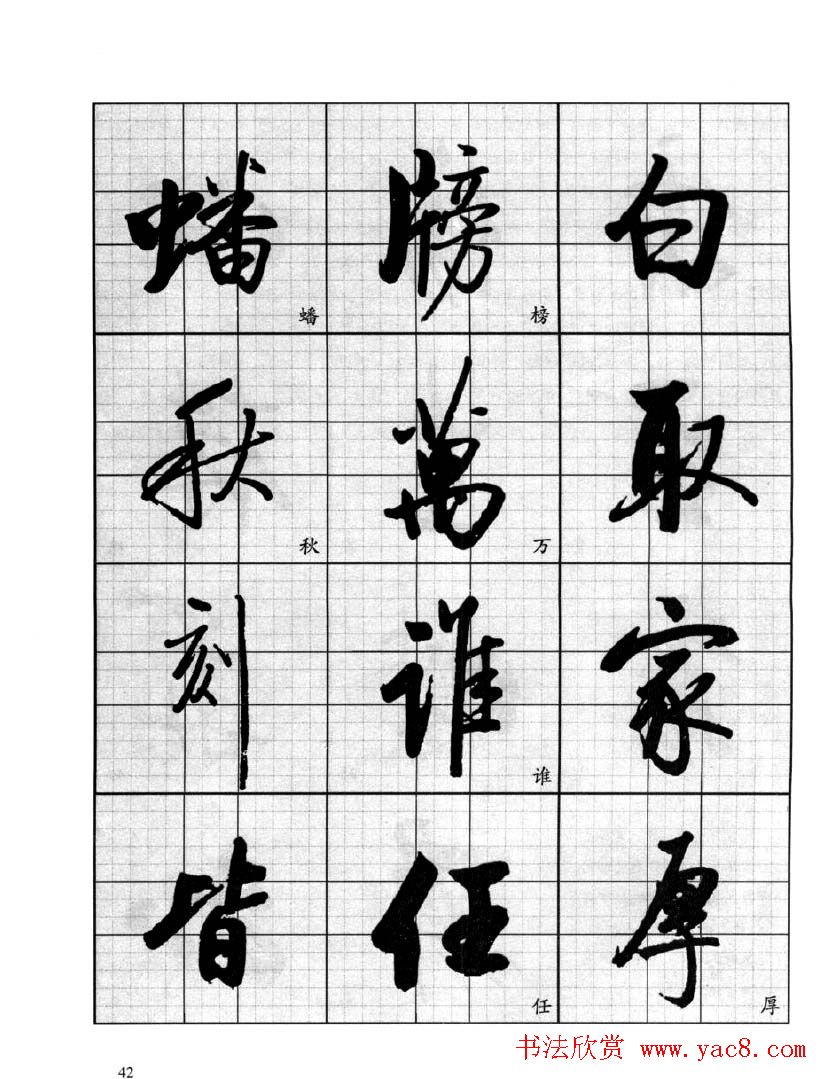 白
取
家
厚
厚
牓
榜
萬
万
誰
谁
任
任
蟠
蟠
秋
秋
刻
皆
书法欣赏 www.yac8.com
42